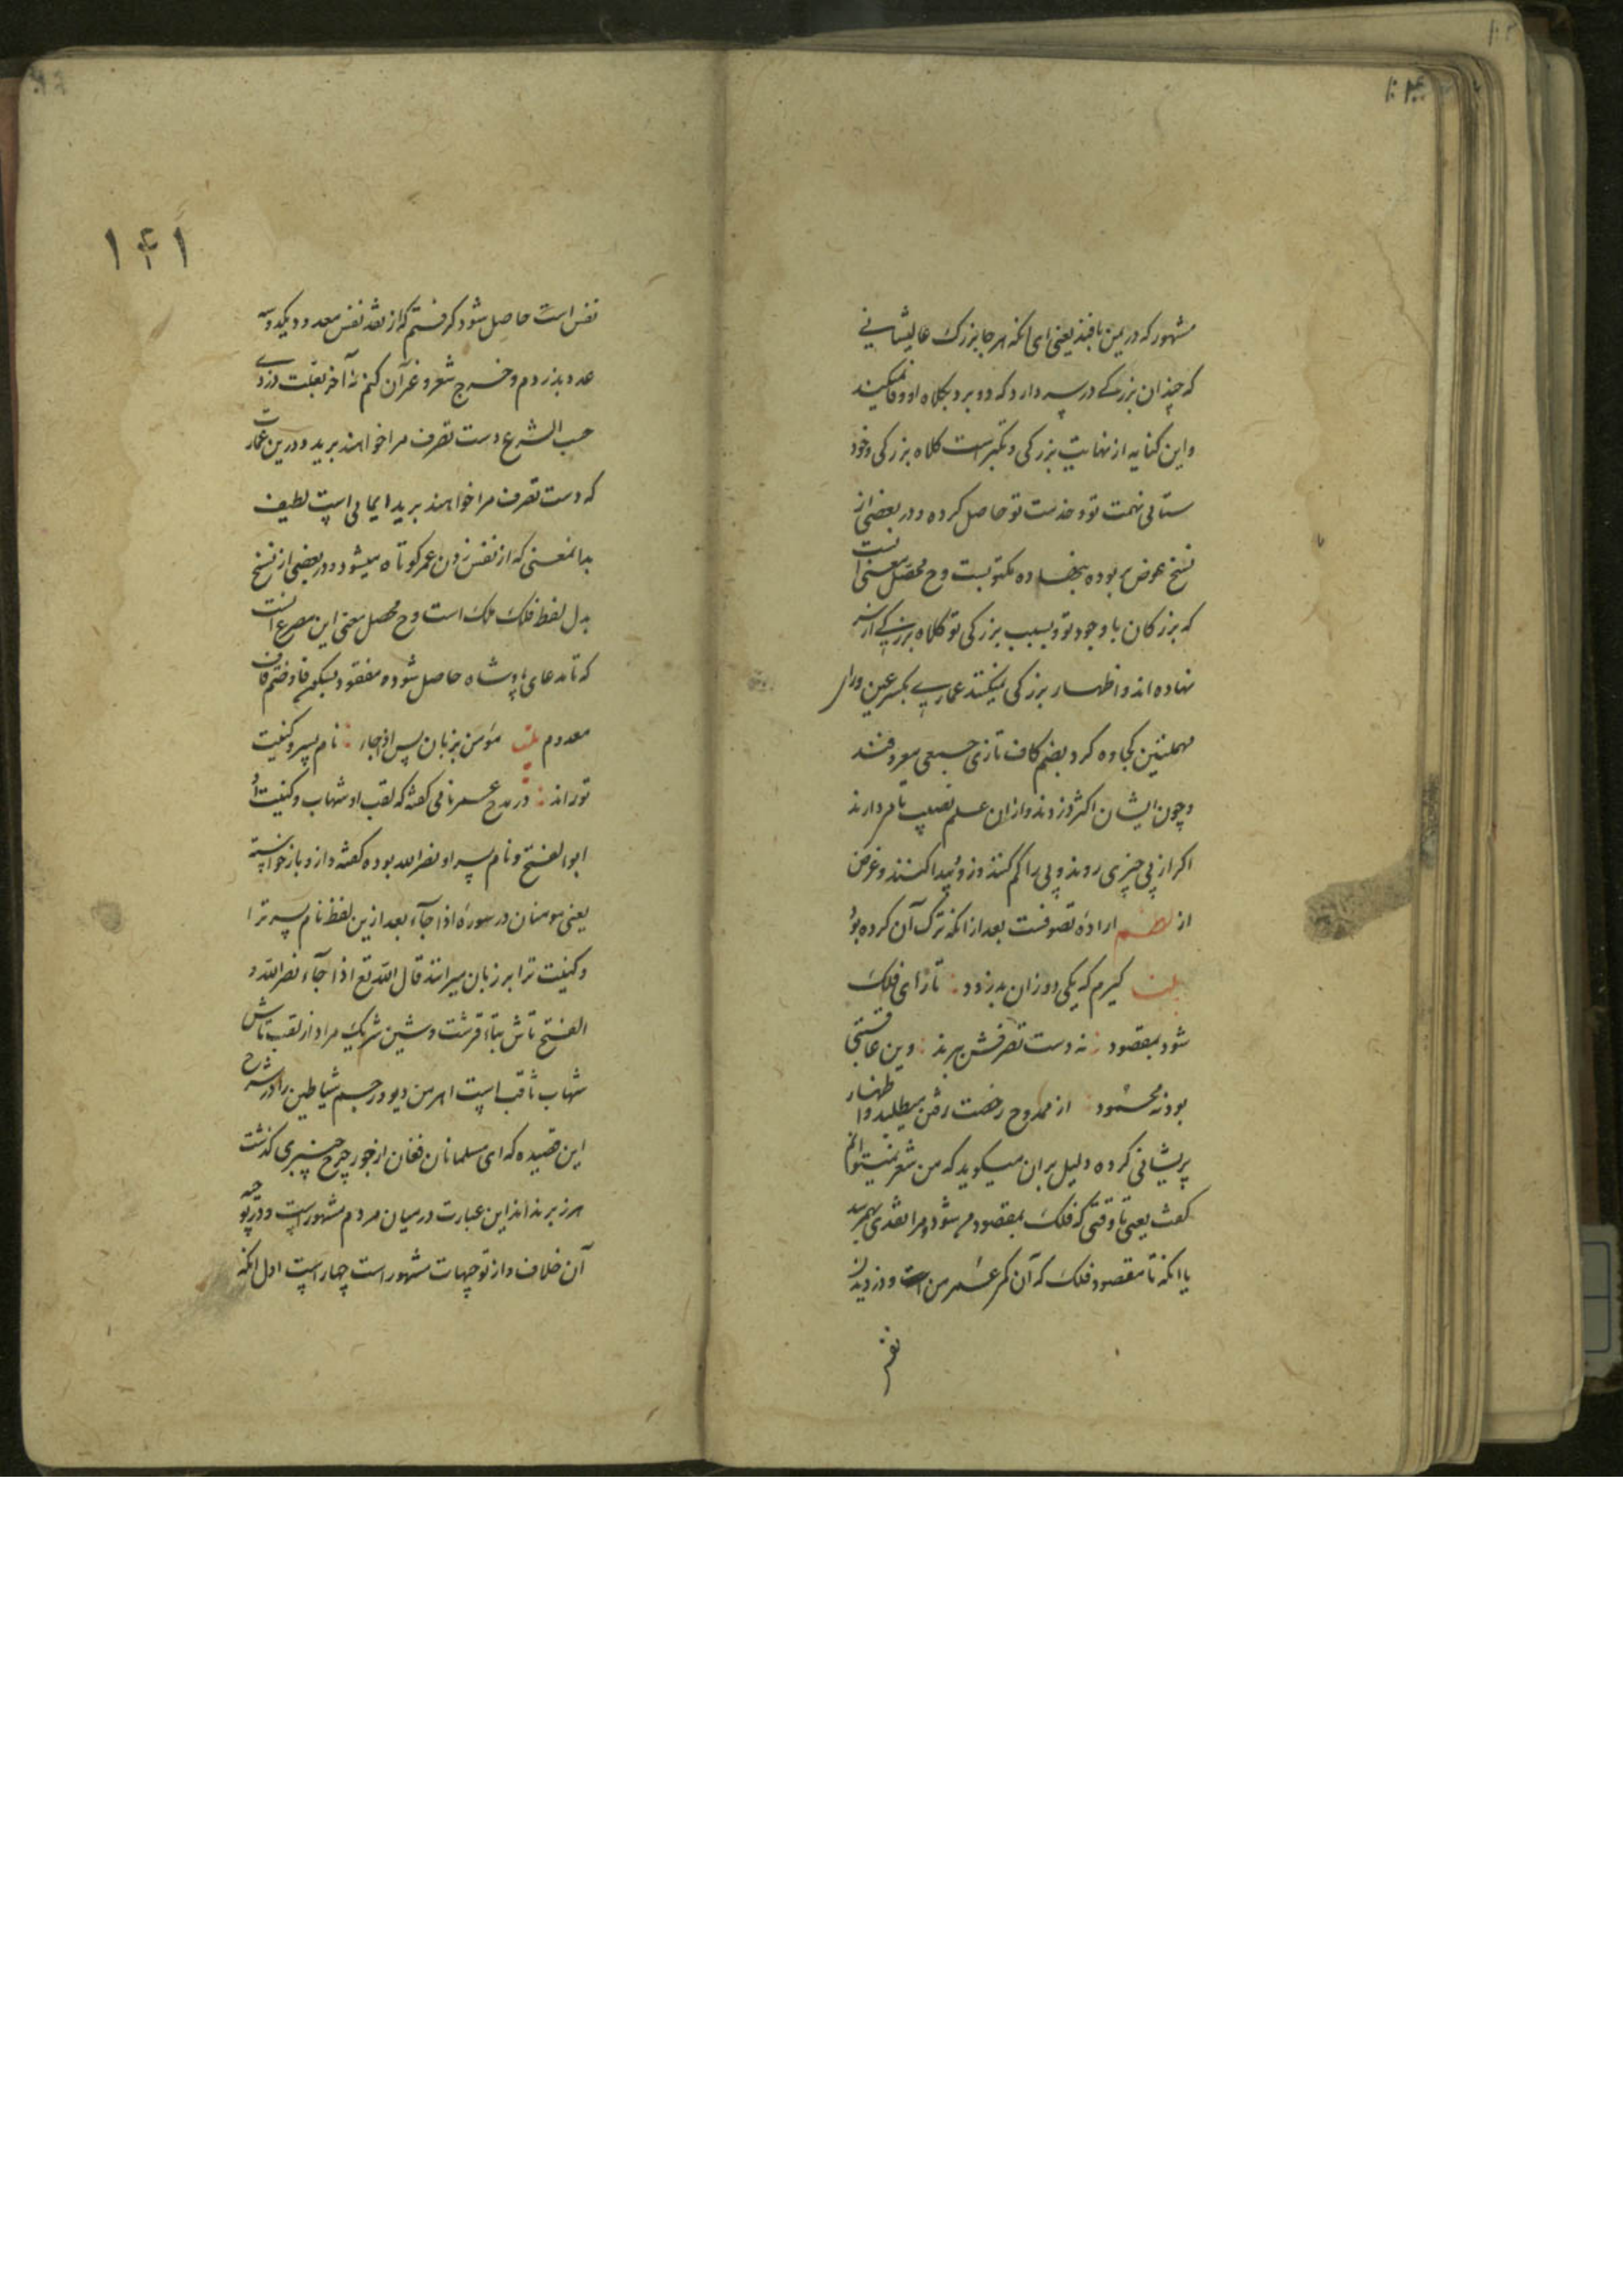 مشهور که در یمن بافند یعنی ای انکه هر جا بزرک عالیشانی
که چندان بزرکے در سر دارد که دو برد بکلاه او وفا نمیکند
و این کنایه از نهایت بزرکی و تکبر است کلاه بزرکی و خود
ستائی نهمت تو و خدمت تو حاصل کرده و در بعضی از
نسخ عوض بربوده بنهاده مکتوبست و ح محصل معنی انست
که بزرکان با وجود تو و بسبب بزرکی تو کلاه بزرکے از سر
نهاده اند و اظهار بزرکی نمیکنند عماری بکسر عین و راء
مهملتین کجاوه کرد بضم کاف تازی جمعی معروفند
و چون ایشان اکثر دزدند و ازان علم نصیب تام دارند
اکر از پی چیزی روند و پی را کم کنند دزد پیدا کنند و غرض
از نظم اراده تصوفست بعد از انکه ترک آن کرده بود
بیت کیرم که یکی دو زان بدزدد تا رای فلک
شود بمقصود نه دست تصرفش ببرند وین عاقبتی
بود نه محمود از ممدوح رخصت رفتن میطلبد و اظهار
پریشانی کرده دلیل بران میکوید که من شعر نمیتوانم
کفت یعنی تا وقتی که فلک بمقصود من شود و مرا نقدی بهم رسد
یا انکه تا مقصود فلک که آن کم عمر من است و دزدیدن
نفس
۱۴۱
نفس است حاصل شود کرفتم که از نقد نفس معدود یکدو سه
عدد بدزدم و خرج شعر و غرآن کنم نه آخر بعلت دزدی
حسب الشرع دست تصرف مرا خواهند برید و درین عبارت
که دست تصرف مرا خواهند برید ایمائی است لطیف
بدانمعنی که از نفس زدن عمر کوتاه میشود و در بعضی از نسخ
بدل لفظ فلک ملک است و ح محصل معنی این مصرع انست
که تا مدعای پادشاه حاصل شود و مفقود بسکون فا و ضم قاف
معدوم بیت مؤمن بزبان پس اذا جاء نام پسر و کنیت
تو راند در مدح عمر نامی کفته که لقب او شهاب و کنیت او
ابو الفتح و نام پسر او نصر الله بوده کفته و ازو باز خواسته
یعنی مومنان در سوره اذا جآء بعد ازین لفظ نام پسر ترا
و کنیت ترا بر زبان میرانند قال الله تع اذا جآء نصر الله و
الفتح تاش بتاء قرشت و شین شریک مراد از لقب تاش
شهاب ثاقب است اهرمن دیو و رجم شیاطین را در شرح
این قصیده که ای مسلمانان فغان از جور چرخ چنبری کذشت
هرز برند اند این عبارت در میان مردم مشهور است و در توجیه
آن خلاف و از توجیهات مشهور است چهار است اول انکه